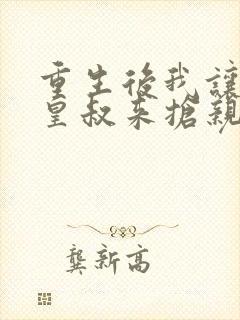 重生後我讓
皇叔來搶親
龔新高